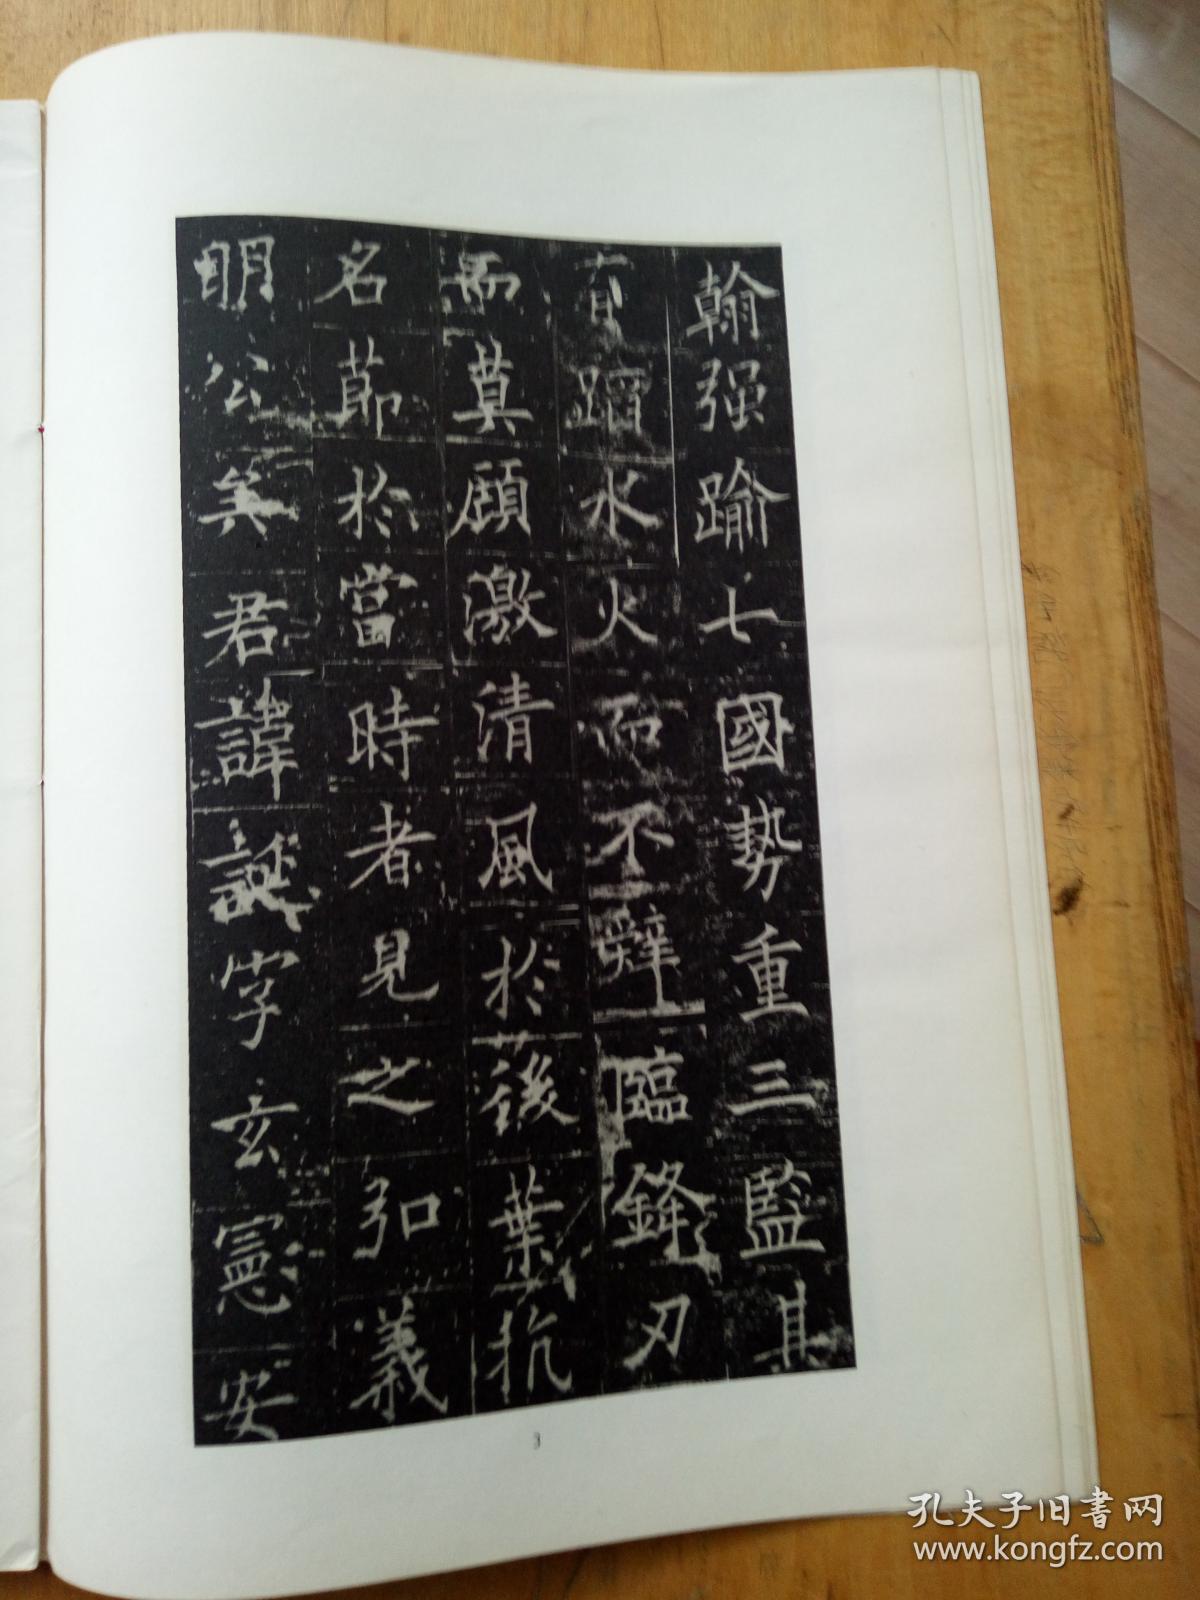 翰强踰七國勢重三監其
有蹈水火而不辭臨鋒刃
而莫顧激清風於後葉抗
名節於當時者見之弘義
明公矣君諱誕字玄憲安
3
孔夫子旧书网
www.kongfz.com